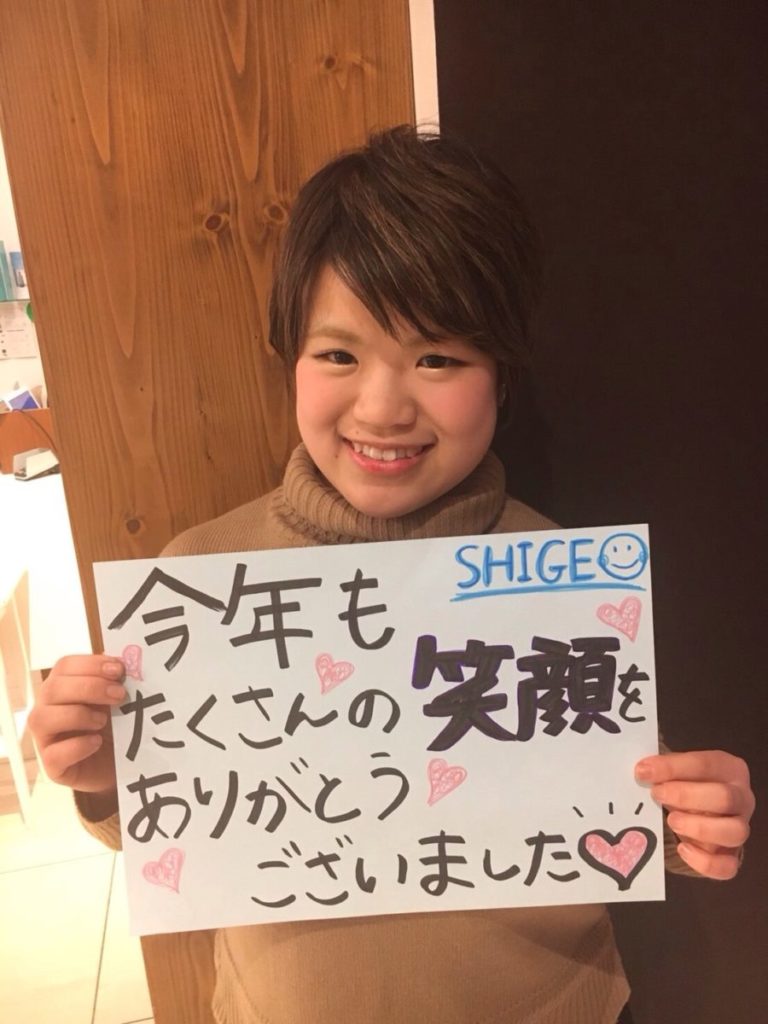 SHIGEO
今年も
たくさんの笑顔を
ありがとう
ございました